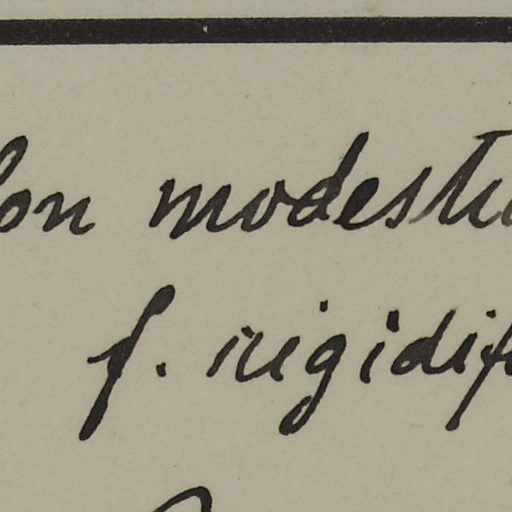 lon modestu
f. rigidif